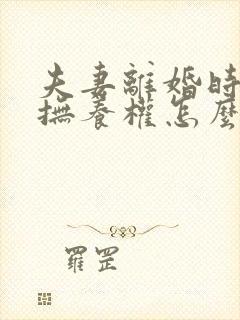 夫妻離婚時
撫養權怎麼
羅罡